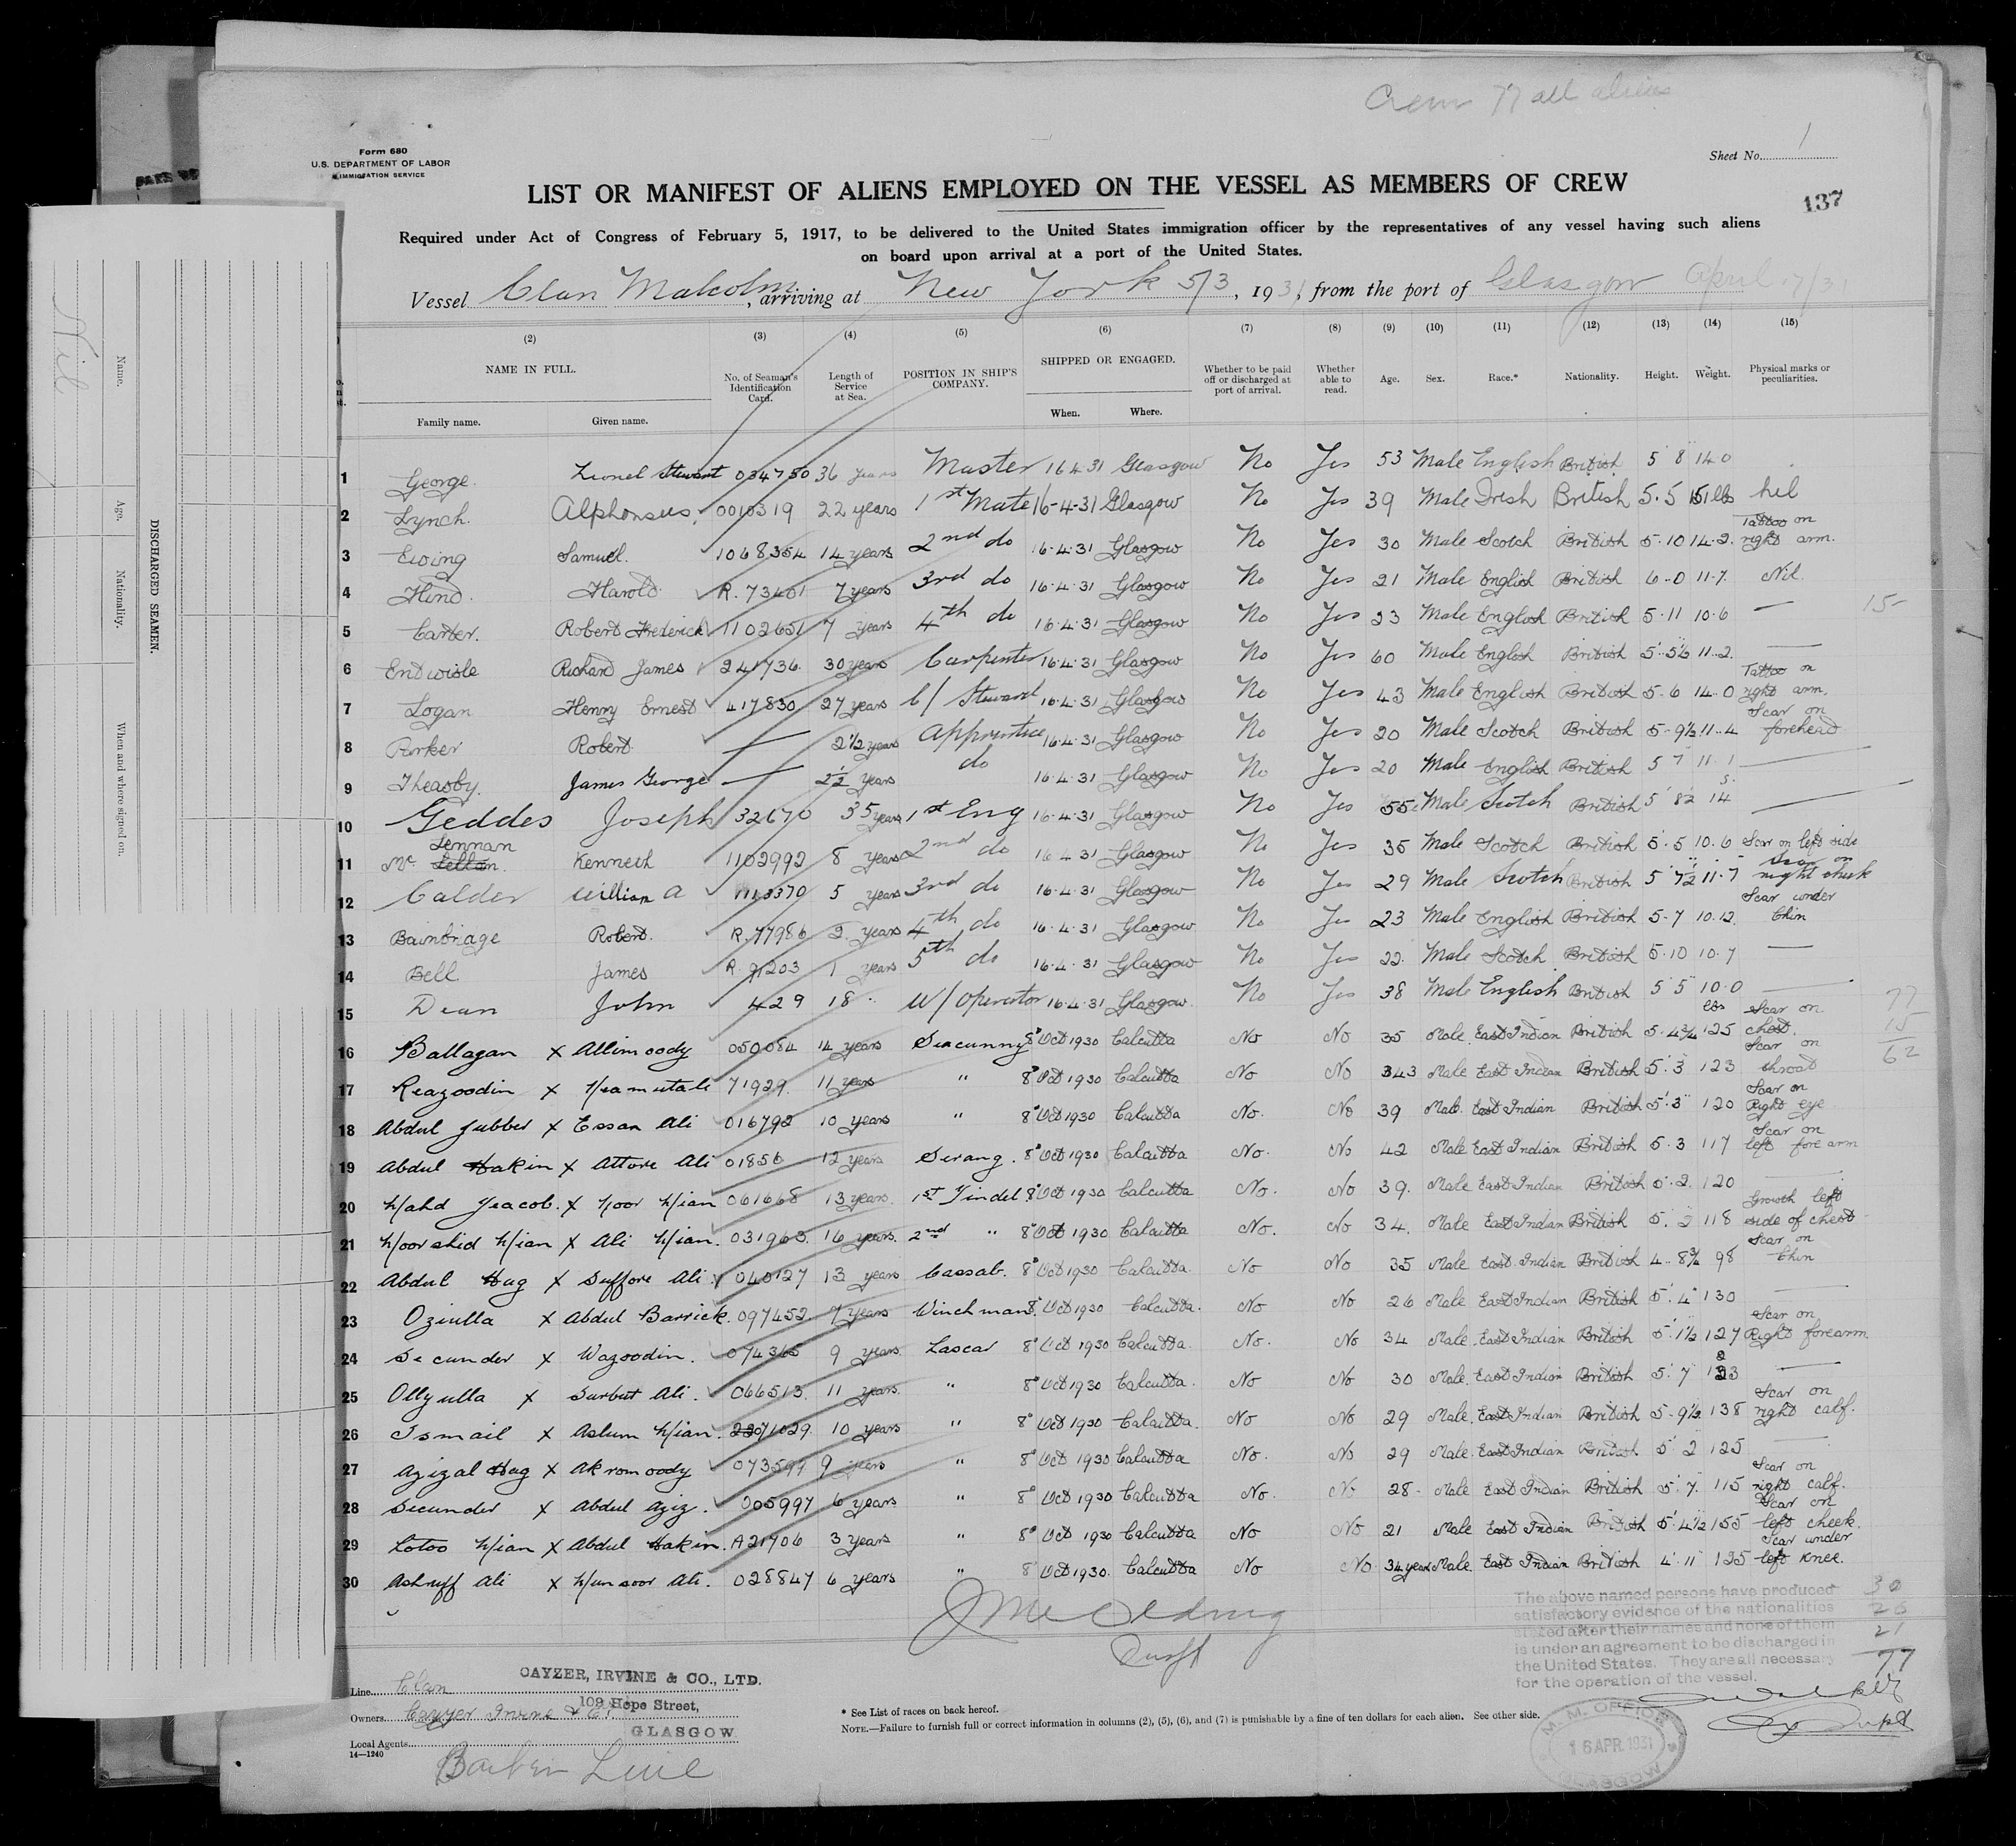 Crew 77 all aliens
Form 680
U.S. DEPARTMENT OF LABOR
IMMIGRATION SERVICE
Sheet No. 1
LIST OR MANIFEST OF ALIENS EMPLOYED ON THE VESSEL AS MEMBERS OF CREW
137
Required under Act of Congress of February 5, 1917, to be delivered to the United States immigration officer by the representatives of any vessel having such aliens
on board upon arrival at a port of the United States.
Vessel Clan Malcolm, arriving at New York 5/3, 1931, from the port of Glasgow April 17/31
(2) (3) (4) (5) (6) (7) (8) (9) (10) (11) (12) (13) (14) (15)
NAME IN FULL. Family name. Given name. No. of Seaman's Identification Card. Length of Service at Sea. POSITION IN SHIP'S COMPANY. SHIPPED OR ENGAGED. When. Where. Whether to be paid off or discharged at port of arrival. Whether able to read. Age. Sex. Race.* Nationality. Height. Weight. Physical marks or peculiarities.
1 George Lionel Stewart 034750 36 years Master 16 4 31 Glasgow No Yes 53 Male English British 5 8 140
2 Lynch. Alphonsus. 0010319 22 years 1st Mate 16-4-31 Glasgow No Yes 39 Male Irish British 5.5 151 lbs nil
3 Ewing Samuel. 1068354 14 years 2nd do 16.4.31 Glasgow No Yes 30 Male Scotch British 5.10 14.2. Tattoo on right arm.
4 Hind. Harold. R.73401 7 years 3rd do 16.4.31 Glasgow No Yes 21 Male English British 6-0 11.7. Nil.
5 Carter. Robert Frederick 1102651 7 years 4th do 16.4.31 Glasgow No Yes 23 Male English British 5.11 10.6 — 15-
6 Entwisle Richard James 241736. 30 years Carpenter 16.4.31 Glasgow No Yes 60 Male English British 5.5½ 11..2. —
7 Logan Henry Ernest 417830 27 years C/ Steward 16.4.31 Glasgow No Yes 43 Male English British 5.6 14.0 Tattoo on right arm.
8 Parker Robert — 2½ years Apprentice 16.4.31 Glasgow No Yes 20 Male Scotch British 5-9½ 11..4 Scar on forehead
9 Theasby. James George — 2½ years do 16.4.31 Glasgow No Yes 20 Male English British 5 7 11.1 —
10 Geddes Joseph 32670 35 years 1st Eng 16.4.31 Glasgow No Yes 55 Male Scotch British 5' 8½ 14 —
11 Mc Lennan Kenneth 1102992 8 years 2nd do 16 4 31 Glasgow No Yes 35 Male Scotch British 5.5 10.6 Scar on left side
12 Calder William A 1113370 5 years 3rd do 16.4.31 Glasgow No Yes 29 Male Scotch British 5 7½ 11.7 Scar on right cheek
13 Bainbridge Robert. R.77986 2 years 4th do 16.4.31 Glasgow No Yes 23 Male English British 5-7 10.12 Scar under Chin
14 Bell James R.91203 1 years 5th do 16.4.31 Glasgow No Yes 22. Male Scotch British 5.10 10.7 —
15 Dean John 429 18 " W/ Operator 16.4.31 Glasgow. No Yes 38 Male English British 5 5 10.0 —
77
15
62
16 Ballagan x Allimoody 050084 14 years Seacunny 8" Oct 1930 Calcutta No No 35 Male East Indian British 5.4¾ 125 lbs Scar on chest.
17 Reazoodin x 71929. 11 years " 8" Oct 1930 Calcutta No No 43 Male East Indian British 5.3 123 Scar on throat
18 Abdul Jubber x Essan Ali 016792 10 years " 8" Oct 1930 Calcutta No. No 39 Male. East Indian British 5.3 120 Scar on Right eye
19 Abdul Hakim x Attore Ali 01856 12 years Serang. 8" Oct 1930 Calcutta No. No 42 Male East Indian British 5.3 117 Scar on left fore arm
20 Mahd Yeacob. x Noor Mian 061668 13 years. 1st Tindel. 8" Oct 1930 Calcutta No. No 39. Male East Indian British 5.2. 120 —
21 Moorshid Mian x Ali Mian. 031963. 16 years. 2nd " 8" Oct 1930 Calcutta No. No 34. Male East Indian British 5.2 118 Growth left side of chest
22 Abdul Hug x Suffore Ali 040127 13 years Cassab. 8" Oct 1930 Calcutta. No No 35 Male East Indian British 4..8¾ 98 Scar on Chin
23 Oziulla x Abdul Barrick. 097452 7 years Winchman 8" Oct 1930 Calcutta. No No 26 Male East Indian British 5.4" 130 —
24 Secunder x Wazoodin. 074365 9 years Lascar 8" Oct 1930 Calcutta. No. No 34 Male East Indian British 5.1½ 127 Scar on Right forearm
25 Ollyulla x Surbut Ali. 066513. 11 years. " 8" Oct 1930 Calcutta. No No 30 Male. East Indian British 5.7 123 —
26 Ismail x Aslum Mian. 071029. 10 years " 8" Oct 1930 Calcutta. No No 29 Male. East Indian British 5-9½ 138 Scar on right calf.
27 Azizal Hug x Akromoody 073591 9 years " 8" Oct 1930 Calcutta No. No 29 Male East Indian British 5.2 125 —
28 Secunder x Abdul Aziz. 005997 6 years " 8" Oct 1930 Calcutta No. No 28- Male East Indian British 5.7. 115 Scar on right calf.
29 Lotoo Mian x Abdul Hakim. A21706 3 years " 8" Oct 1930 Calcutta No No 21 Male East Indian British 5.4½ 155 Scar on left cheek.
30 Ashruff Ali x Munsoor Ali. 028847 6 years " 8" Oct 1930. Calcutta No No. 34 years Male. East Indian British 4.11 135 Scar under left knee.
The above named persons have produced
satisfactory evidence of the nationalities
stated after their names and none of them
is under an agreement to be discharged in
the United States. They are all necessary
for the operation of the vessel.
30
26
21
77
M. M. OFFICE
16 APR 1931
GLASGOW
Line Clan CAYZER, IRVINE & CO., LTD.
Owners Cayzer Irvine & Co. 109 Hope Street,
GLASGOW
Local Agents
14—1240
* See List of races on back hereof.
NOTE.—Failure to furnish full or correct information in columns (2), (5), (6), and (7) is punishable by a fine of ten dollars for each alien. See other side.
Barber Line
DISCHARGED SEAMEN.
Name. Age. Nationality. When and where signed on.
Nil